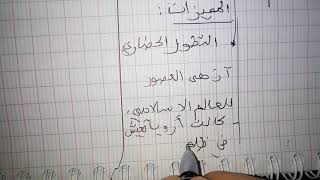 المميزات:
- التطور الحضاري
أزهى العصور
للعالم الإسلامي.
- كانت أروبا تعيش
في ظلم